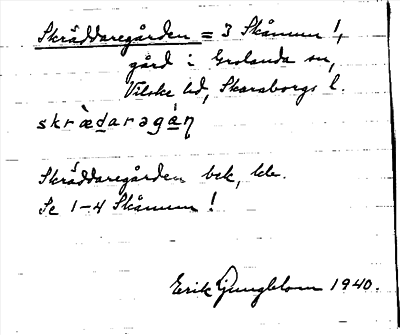 Skräddaregården = 3 Skånum !,
gård i Grolanda sn,
Vilske hd, Skaraborgs l.
skræ̀daragá̀ṇ
Skräddaregården bek, lde.
Se 1-4 Skånum !
Erik Ljungblom 1940.